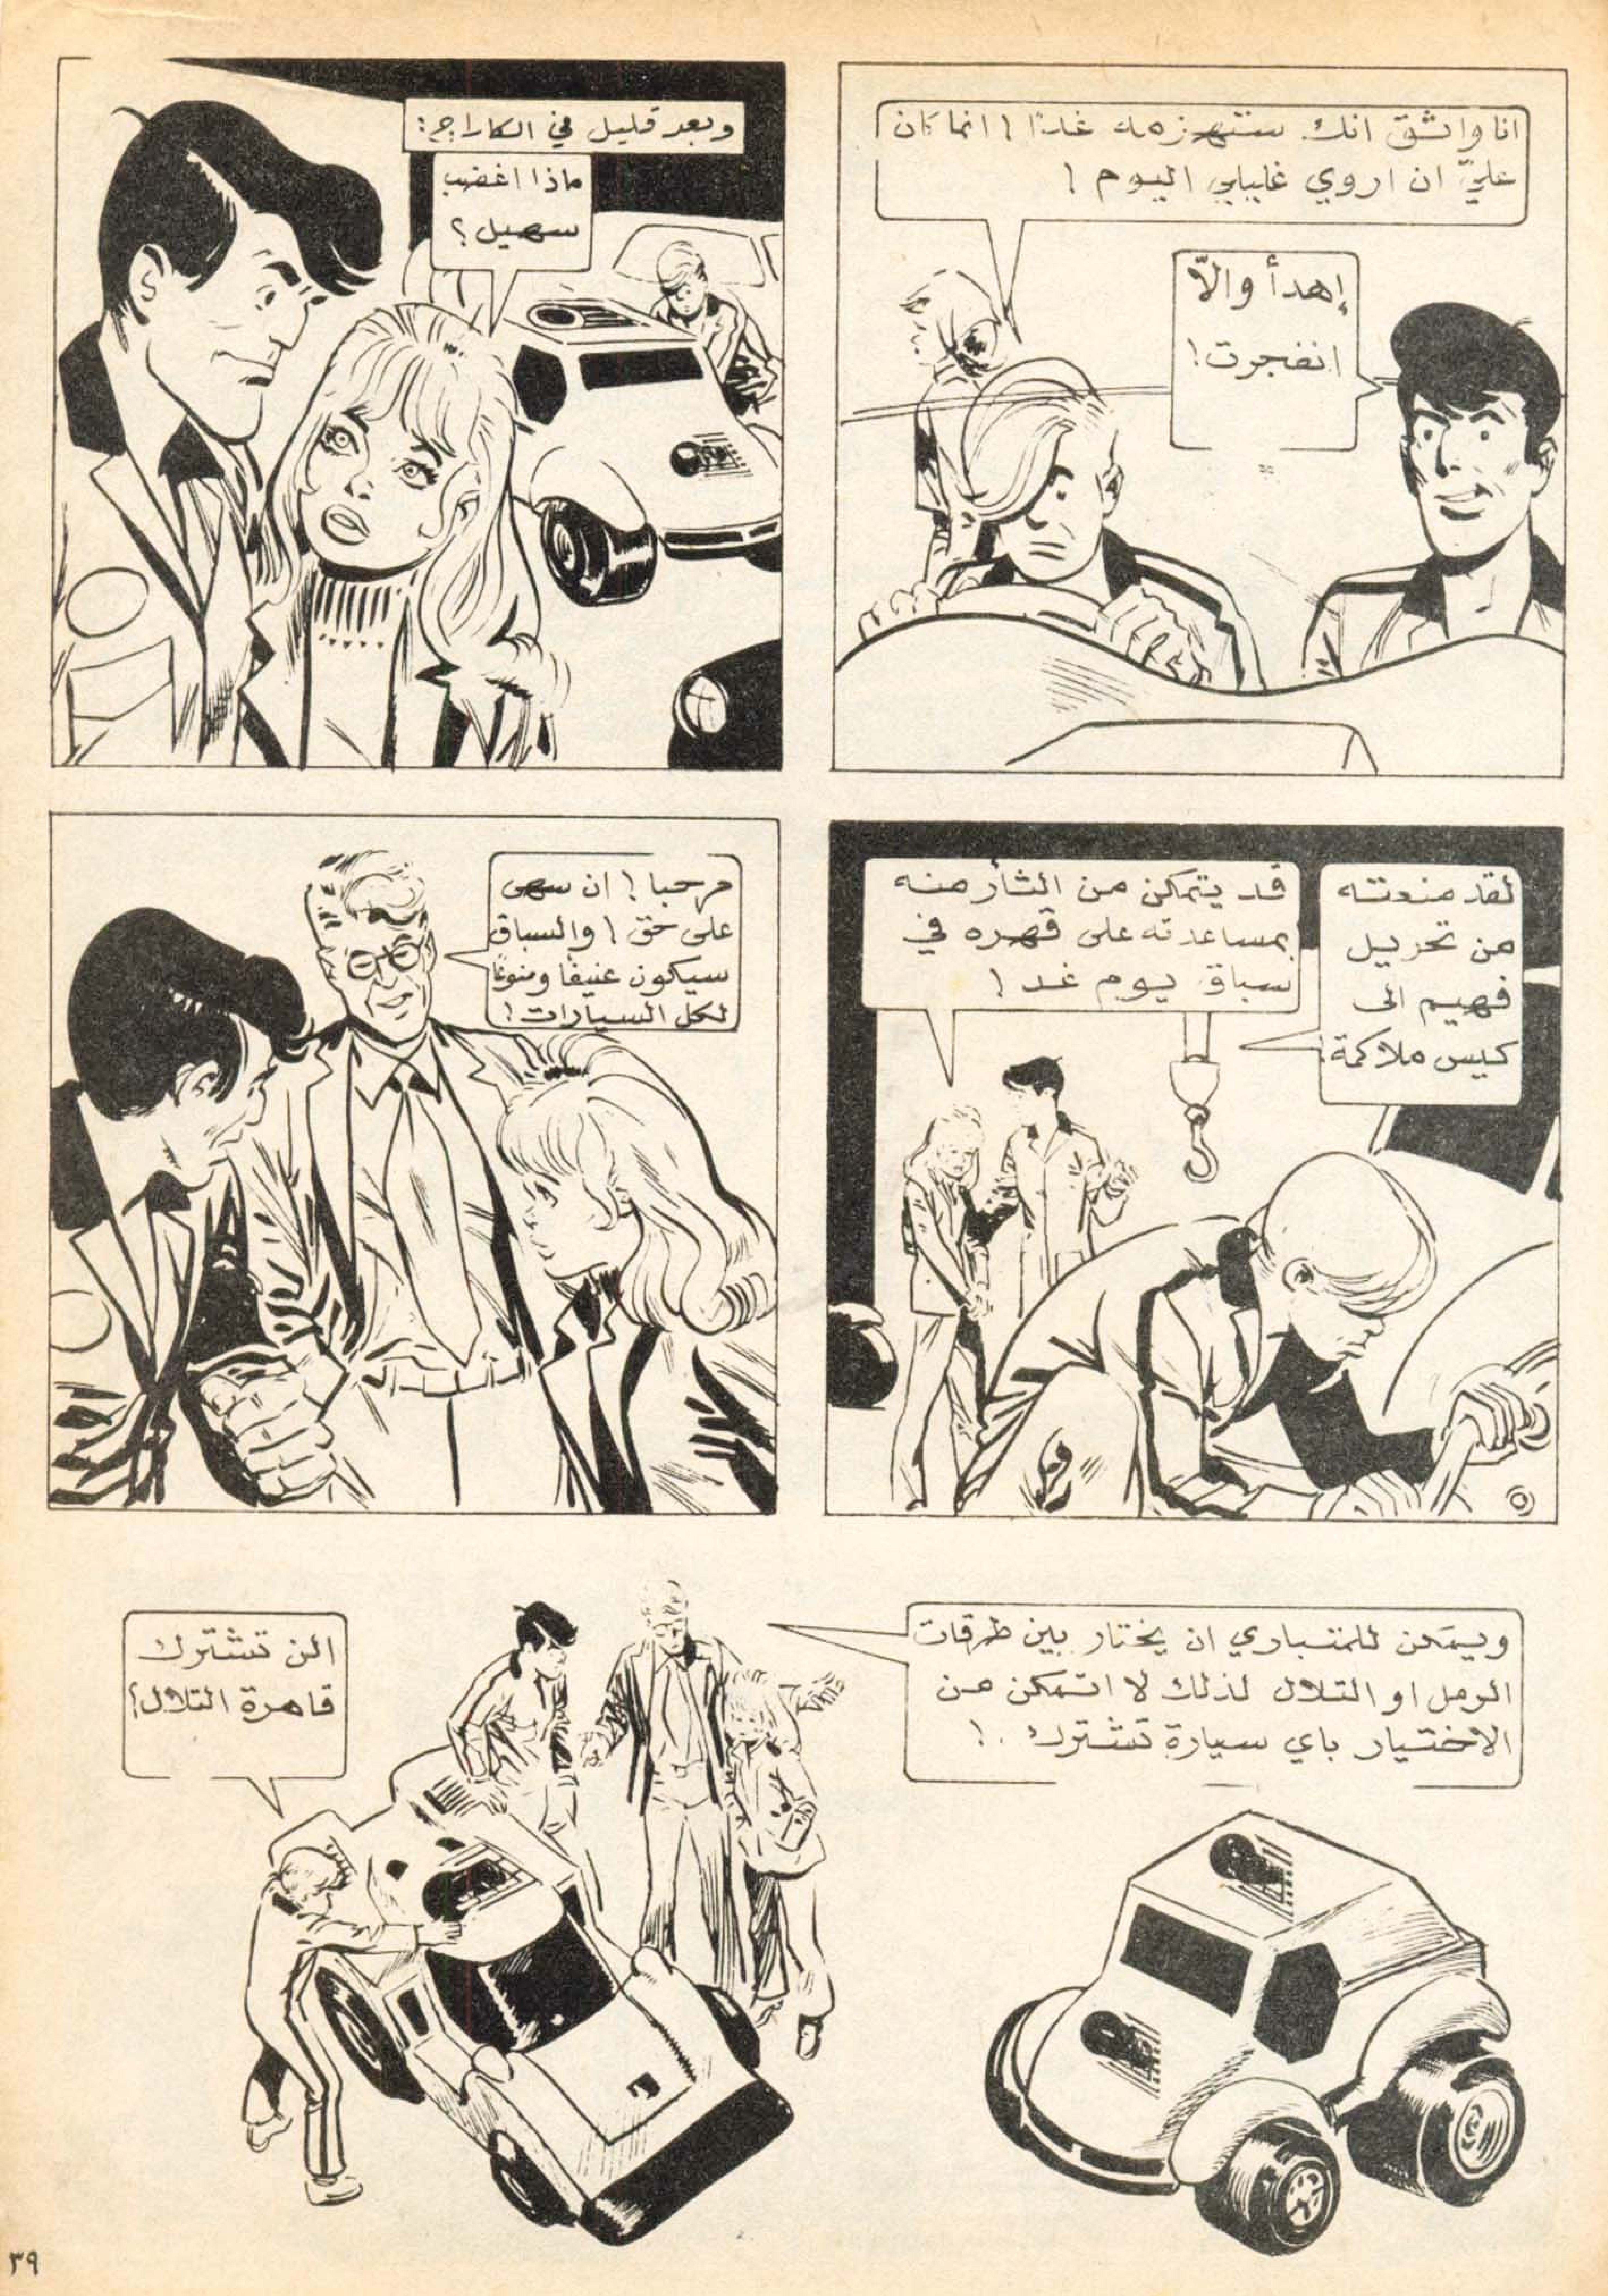 انا واثق انك ستهزمه غدًا! انما كان
عليّ ان اروي غليلي اليوم!
إهدأ والّا
انفجرت!
وبعد قليل في الكاراج:
ماذا اغضب
سهيل؟
لقد منعته
من تحويل
فهيم الى
كيس ملاكمة!
قد يتمكن من الثأر منه
بمساعدته على قهره في
سباق يوم غد!
مرحبا! ان سهى
على حق! والسباق
سيكون عنيفًا ومنوعًا
لكل السيارات!
ويمكن للمتباري ان يختار بين طرقات
الرمل او التلال لذلك لا اتمكن من
الاختيار باي سيارة تشترك..!
الن تشترك
قاهرة التلال؟
٣٩